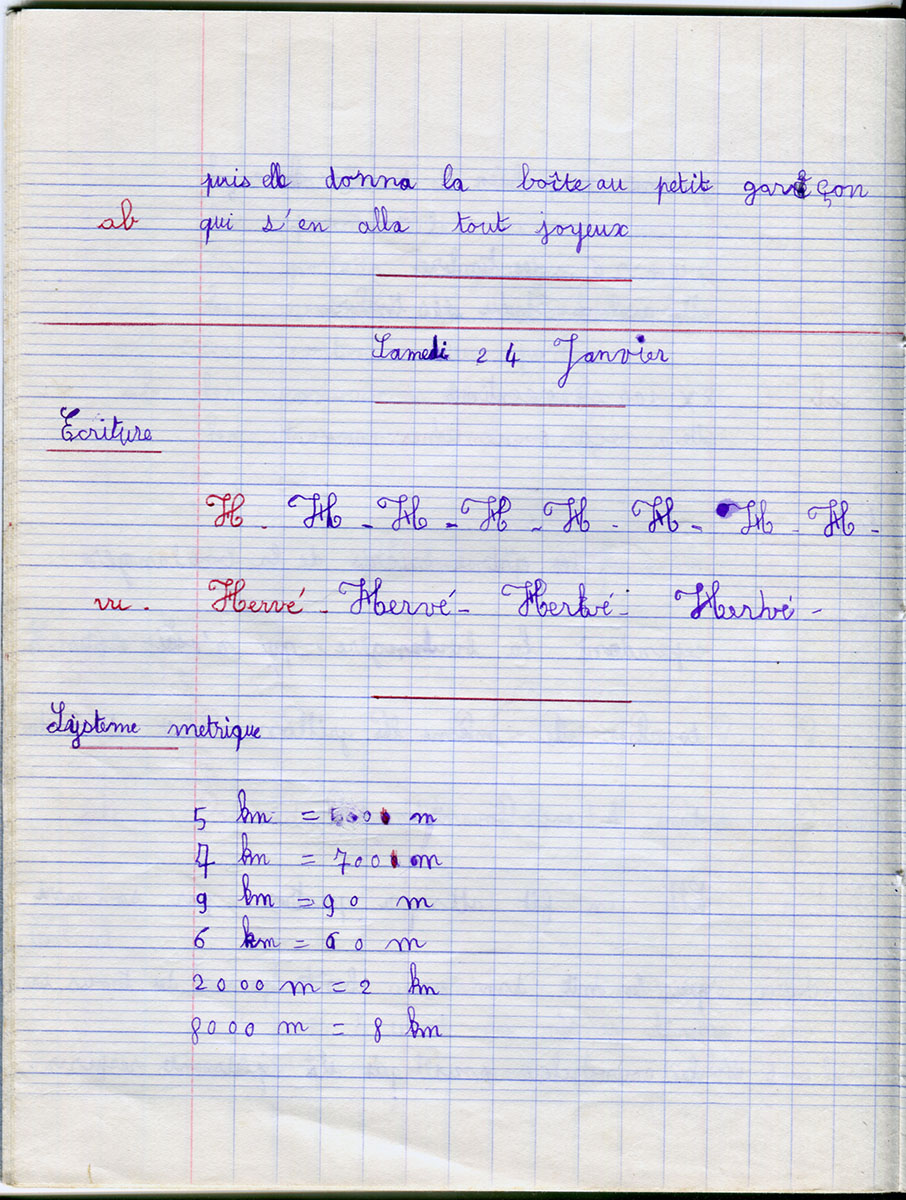 puis elle donna la boîte au petit garçon
ab qui s'en alla tout joyeux
Samedi 24 Janvier
Ecriture
H - H - H - H - H - H - H - H -
vu. Hervé - Hervé - Hervé - Hervé -
Système metrique
5 km = 5000 m
7 km = 7000 m
9 km = 90 m
6 km = 60 m
2000 m = 2 km
8000 m = 8 km